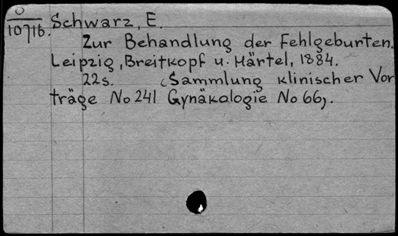 0
1071b.
Schwarz, E.
Zur Behandlung der Fehlgeburten.
Leipzig, Breitkopf u. Härtel, 1884.
22s. (Sammlung klinischer Vor
träge No 241 Gynäkologie No 66).